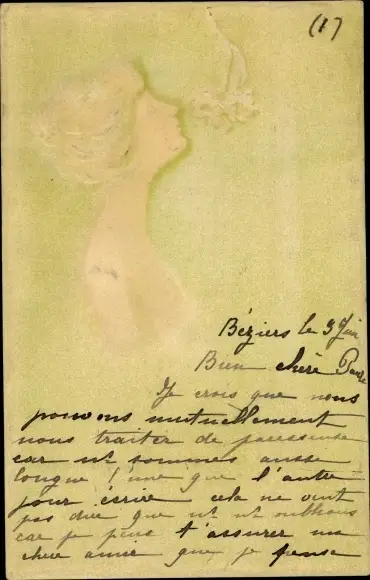 (1)
Béziers le 3 Juin
Bien chère
Je crois que nous
pouvons mutuellement
nous traiter de paresseuse
car ns sommes aussi
longue l'une que l'autre
pour écrire cela ne veut
pas dire que ns ns oublions
car je puis t'assurer ma
chère amie que je pense